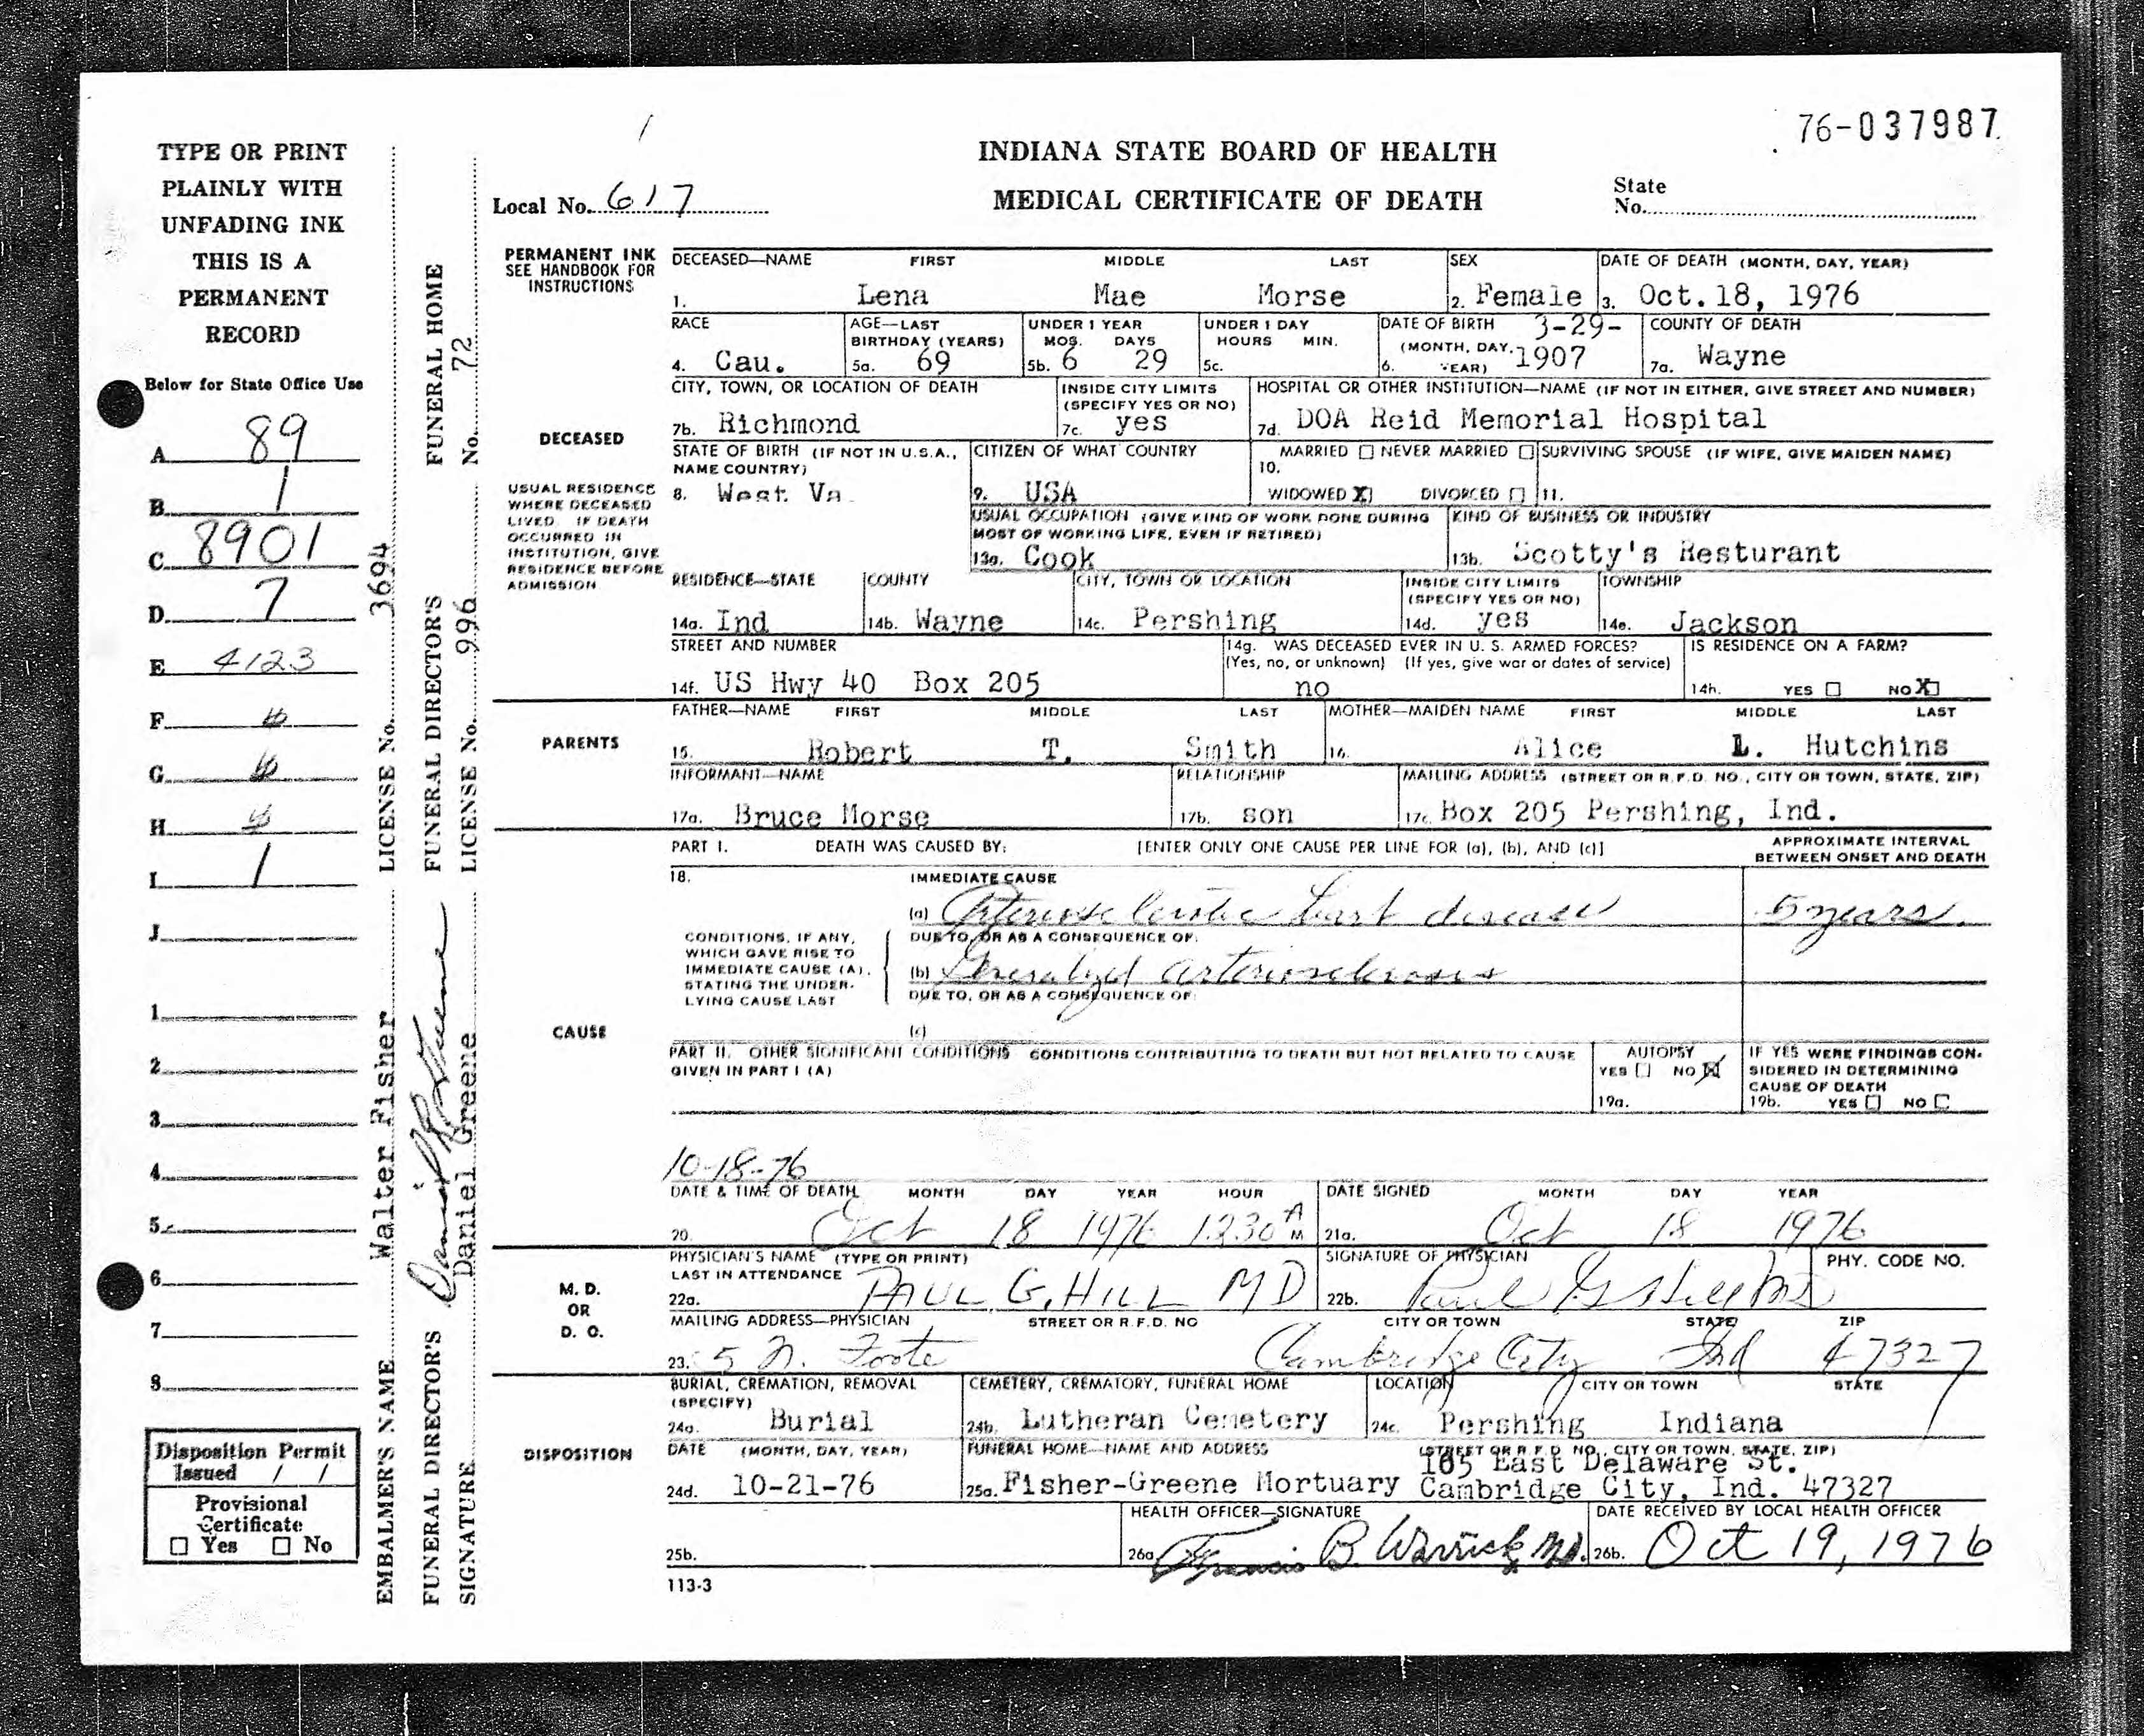 76-037987
TYPE OR PRINT
PLAINLY WITH
UNFADING INK
THIS IS A
PERMANENT
RECORD
Below for State Office Use
A 89
B 1
C 8901
D 7
E 4123
F
G
H
I 1
J
1
2
3
4
5
6
7
8
Disposition Permit
Issued / /
Provisional
Certificate
☐ Yes ☐ No
EMBALMER'S NAME Walter Fisher LICENSE No. 3694
FUNERAL DIRECTOR'S FUNERAL DIRECTOR'S FUNERAL HOME
SIGNATURE Daniel Greene LICENSE No. 996 No. 72
INDIANA STATE BOARD OF HEALTH
Local No. 617 MEDICAL CERTIFICATE OF DEATH State No.
PERMANENT INK
SEE HANDBOOK FOR
INSTRUCTIONS
DECEASED—NAME FIRST MIDDLE LAST SEX DATE OF DEATH (MONTH, DAY, YEAR)
1. Lena Mae Morse 2. Female 3. Oct. 18, 1976
RACE AGE—LAST UNDER 1 YEAR UNDER 1 DAY DATE OF BIRTH 3-29- COUNTY OF DEATH
BIRTHDAY (YEARS) MOS. DAYS HOURS MIN. (MONTH, DAY, YEAR) 1907
4. Cau. 5a. 69 5b. 6 29 5c. 6. 7a. Wayne
CITY, TOWN, OR LOCATION OF DEATH INSIDE CITY LIMITS (SPECIFY YES OR NO) HOSPITAL OR OTHER INSTITUTION—NAME (IF NOT IN EITHER, GIVE STREET AND NUMBER)
7b. Richmond 7c. yes 7d. DOA Reid Memorial Hospital
DECEASED
STATE OF BIRTH (IF NOT IN U.S.A., NAME COUNTRY) CITIZEN OF WHAT COUNTRY MARRIED ☐ NEVER MARRIED ☐ SURVIVING SPOUSE (IF WIFE, GIVE MAIDEN NAME)
8. West. Va. 9. USA 10. WIDOWED X DIVORCED ☐ 11.
USUAL RESIDENCE
WHERE DECEASED
LIVED. IF DEATH
OCCURRED IN
INSTITUTION, GIVE
RESIDENCE BEFORE
ADMISSION
USUAL OCCUPATION (GIVE KIND OF WORK DONE DURING MOST OF WORKING LIFE, EVEN IF RETIRED) KIND OF BUSINESS OR INDUSTRY
13a. Cook 13b. Scotty's Resturant
RESIDENCE—STATE COUNTY CITY, TOWN OR LOCATION INSIDE CITY LIMITS (SPECIFY YES OR NO) TOWNSHIP
14a. Ind 14b. Wayne 14c. Pershing 14d. yes 14e. Jackson
STREET AND NUMBER 14g. WAS DECEASED EVER IN U. S. ARMED FORCES? IS RESIDENCE ON A FARM?
(Yes, no, or unknown) (If yes, give war or dates of service)
14f. US Hwy 40 Box 205 no 14h. YES ☐ NO X
PARENTS
FATHER—NAME FIRST MIDDLE LAST MOTHER—MAIDEN NAME FIRST MIDDLE LAST
15. Robert T. Smith 16. Alice L. Hutchins
INFORMANT—NAME RELATIONSHIP MAILING ADDRESS (STREET OR R.F.D. NO., CITY OR TOWN, STATE, ZIP)
17a. Bruce Morse 17b. son 17c. Box 205 Pershing, Ind.
PART I. DEATH WAS CAUSED BY: [ENTER ONLY ONE CAUSE PER LINE FOR (a), (b), AND (c)] APPROXIMATE INTERVAL BETWEEN ONSET AND DEATH
18. IMMEDIATE CAUSE
(a) Arteriosclerotic heart disease 5 years.
CONDITIONS, IF ANY,
WHICH GAVE RISE TO
IMMEDIATE CAUSE (A),
STATING THE UNDER-
LYING CAUSE LAST
DUE TO, OR AS A CONSEQUENCE OF:
(b) Generalized arteriosclerosis
DUE TO, OR AS A CONSEQUENCE OF:
(c)
CAUSE
PART II. OTHER SIGNIFICANT CONDITIONS CONDITIONS CONTRIBUTING TO DEATH BUT NOT RELATED TO CAUSE GIVEN IN PART I (A)
AUTOPSY YES ☐ NO X 19a.
IF YES WERE FINDINGS CON-
SIDERED IN DETERMINING
CAUSE OF DEATH
19b. YES ☐ NO ☐
10-18-76
DATE & TIME OF DEATH MONTH DAY YEAR HOUR DATE SIGNED MONTH DAY YEAR
20. Oct 18 1976 1230 A M 21a. Oct 18 1976
M. D.
OR
D. O.
PHYSICIAN'S NAME (TYPE OR PRINT) SIGNATURE OF PHYSICIAN PHY. CODE NO.
LAST IN ATTENDANCE
22a. PAUL G. HILL MD 22b. Paul G Hill MD
MAILING ADDRESS—PHYSICIAN STREET OR R.F.D. NO CITY OR TOWN STATE ZIP
23. 5 N. Foote Cambridge City Ind 47327
DISPOSITION
BURIAL, CREMATION, REMOVAL (SPECIFY) CEMETERY, CREMATORY, FUNERAL HOME LOCATION CITY OR TOWN STATE
24a. Burial 24b. Lutheran Cemetery 24c. Pershing Indiana
DATE (MONTH, DAY, YEAR) FUNERAL HOME—NAME AND ADDRESS (STREET OR R.F.D. NO., CITY OR TOWN, STATE, ZIP)
105 East Delaware St.
24d. 10-21-76 25a. Fisher-Greene Mortuary Cambridge City, Ind. 47327
HEALTH OFFICER—SIGNATURE DATE RECEIVED BY LOCAL HEALTH OFFICER
25b. 26a. Francis B. Warrick M.D. 26b. Oct 19, 1976
113-3